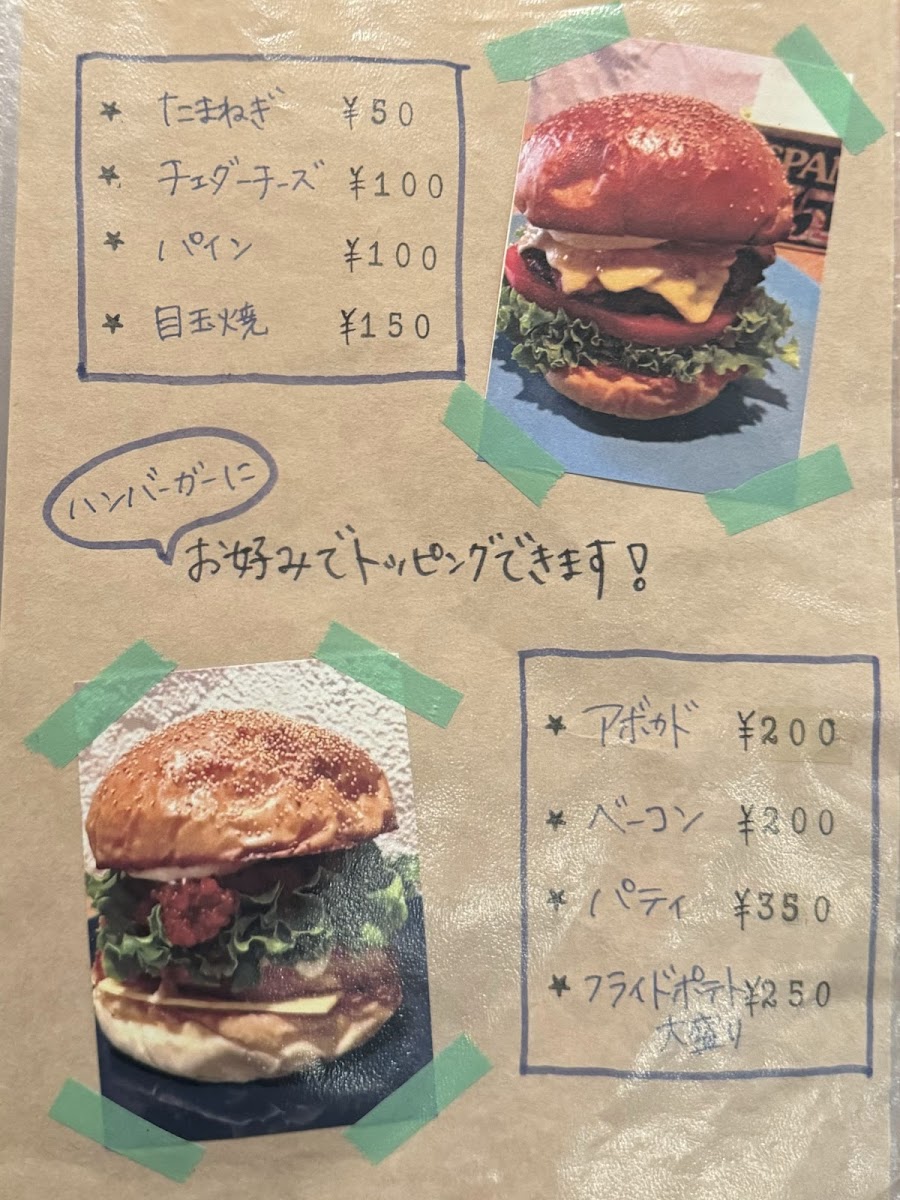 ★ たまねぎ ¥50
★ チェダーチーズ ¥100
★ パイン ¥100
★ 目玉焼 ¥150
SPAM
ハンバーガーに
お好みでトッピングできます!
★ アボカド ¥200
★ ベーコン ¥200
★ パティ ¥350
★ フライドポテト ¥250
大盛り